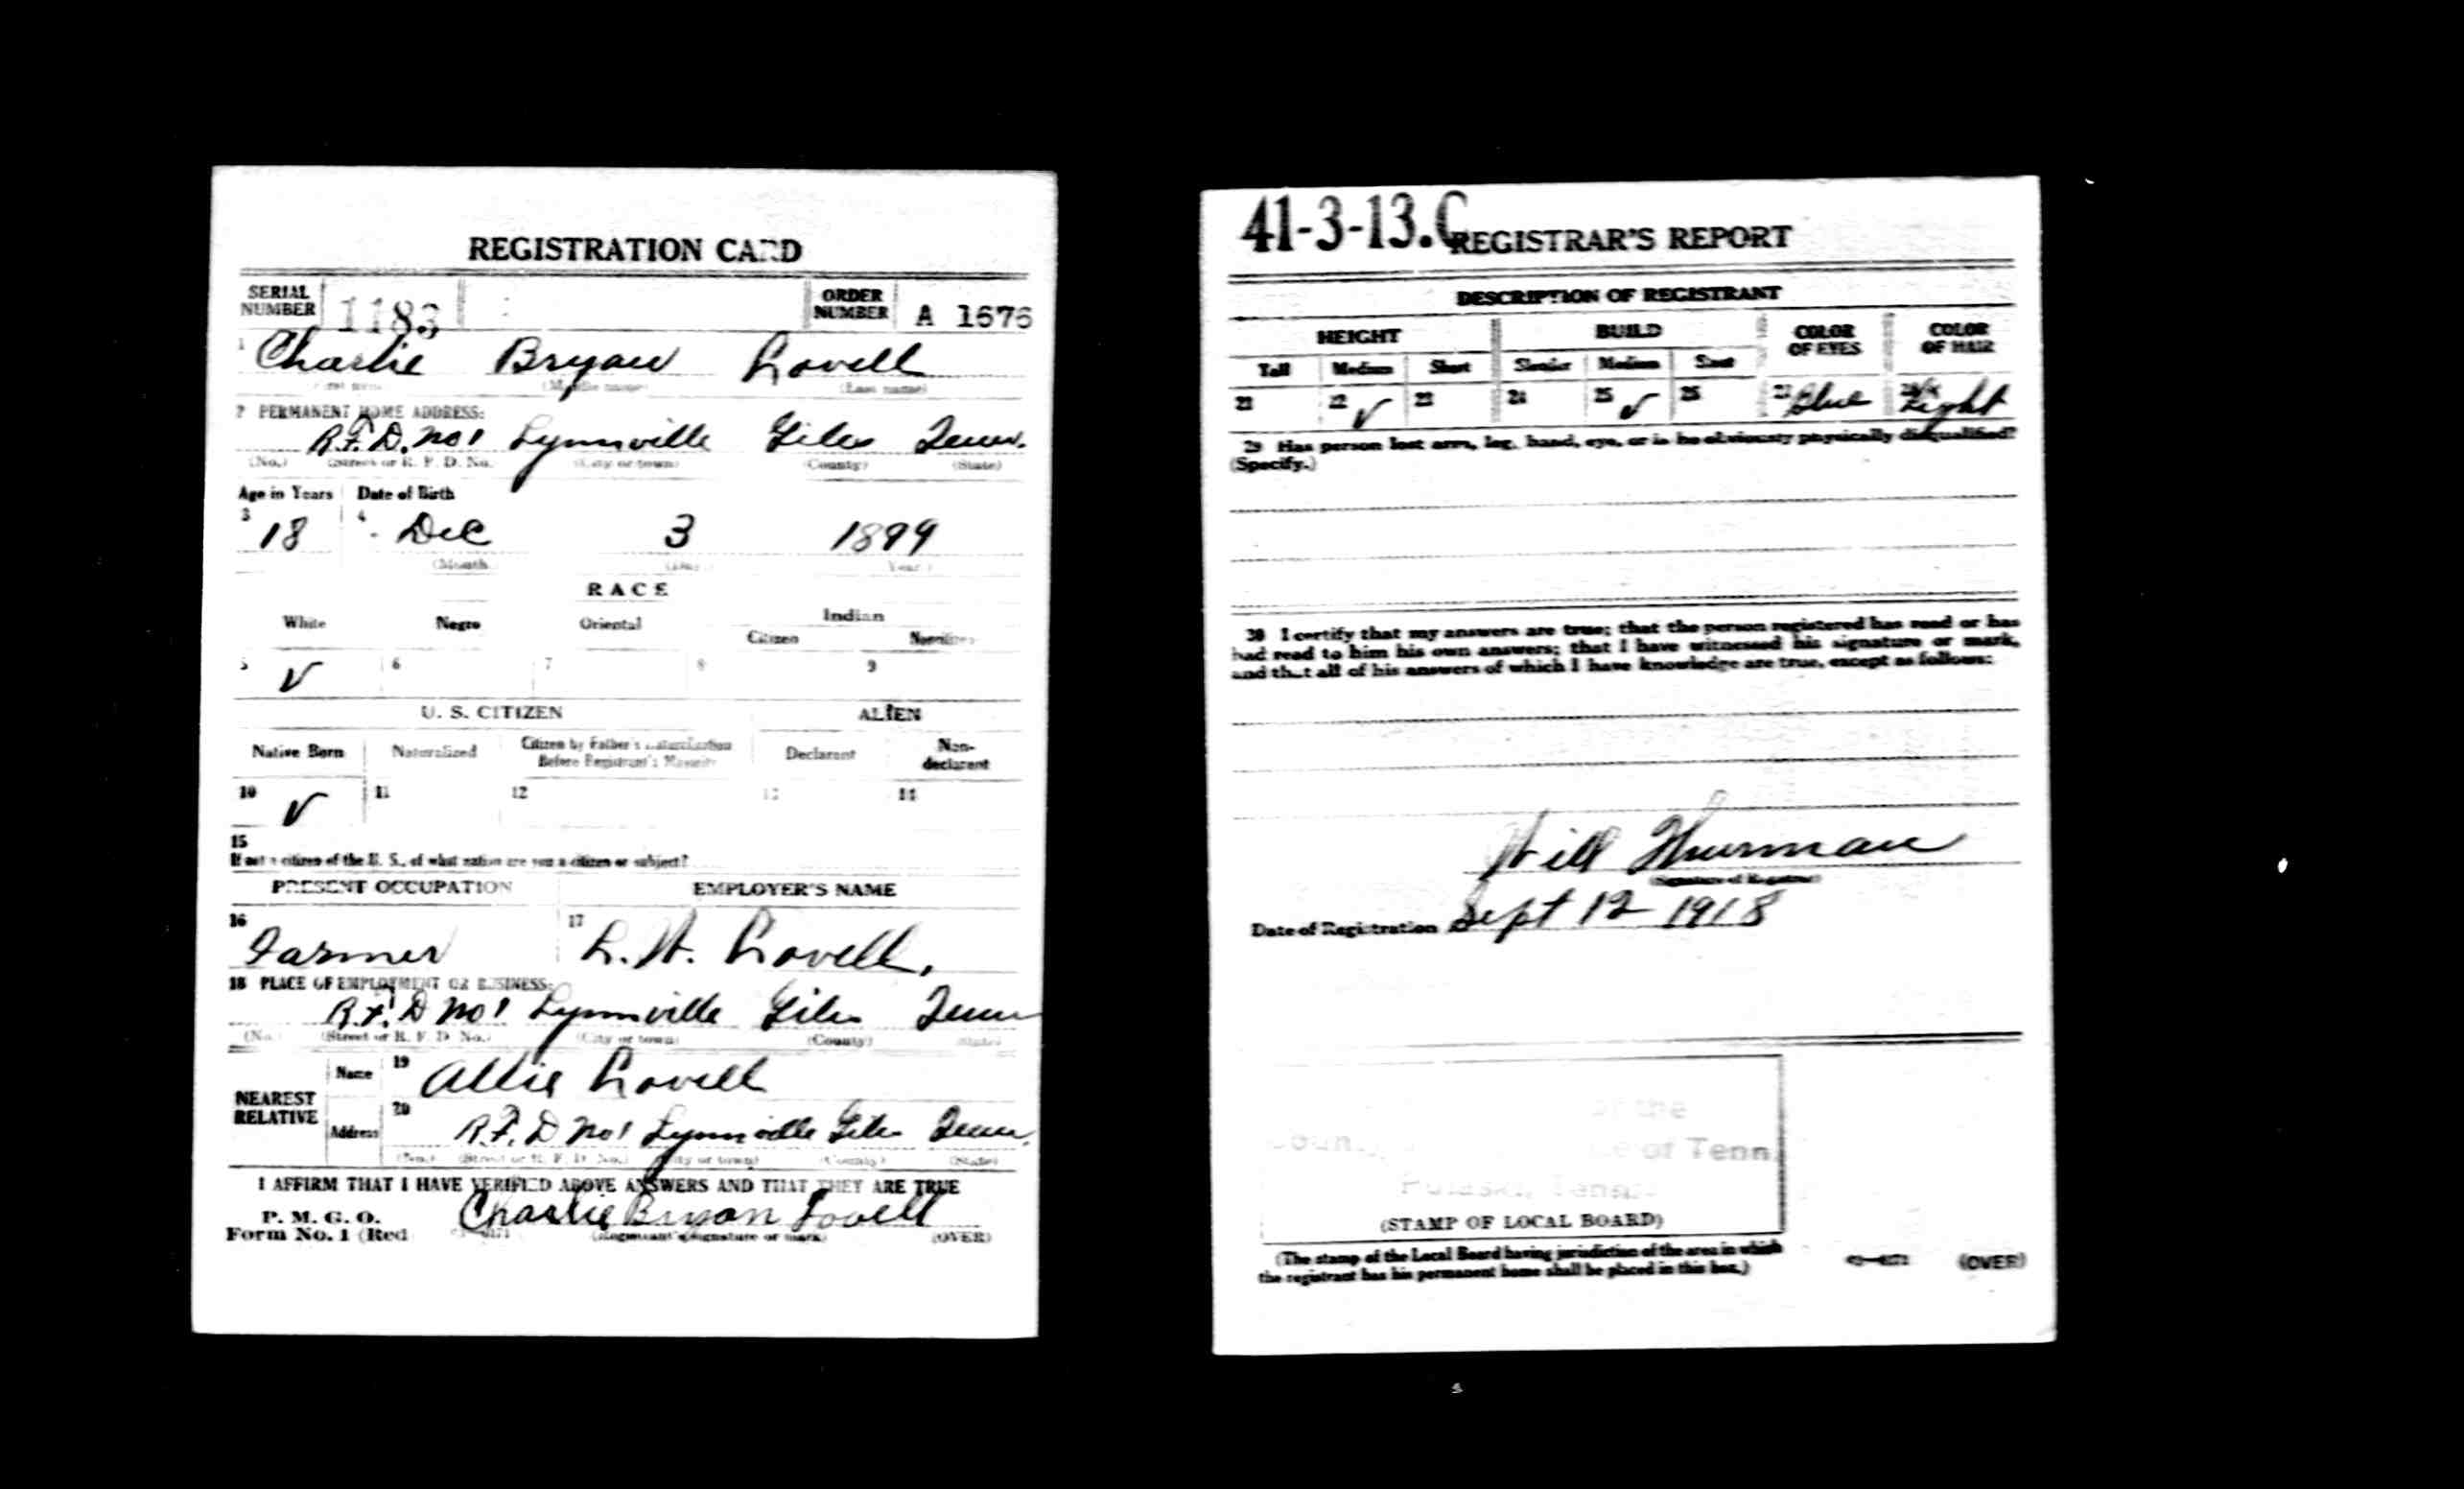 REGISTRATION CARD
SERIAL NUMBER 1183 ORDER NUMBER A 1676
1 Charlie Bryan Lovell
(First name) (Middle name) (Last name)
2 PERMANENT HOME ADDRESS:
R.F.D. No 1 Lynnville Giles Tenn.
(No.) (Street or R. F. D. No.) (City or town) (County) (State)
Age in Years Date of Birth
3 18 4 Dec 3 1899
(Month.) (Day.) (Year.)
RACE
White Negro Oriental Indian
Citizen Noncitizen
5 ✓ 6 7 8 9
U. S. CITIZEN ALIEN
Native Born Naturalized Citizen by Father's Naturalization Before Registrant's Majority Declarant Non-declarant
10 ✓ 11 12 13 14
15
If not a citizen of the U. S., of what nation are you a citizen or subject?
PRESENT OCCUPATION EMPLOYER'S NAME
16 Farmer 17 L. H. Lovell,
18 PLACE OF EMPLOYMENT OR BUSINESS:
R.F.D No 1 Lynnville Giles Tenn
(No.) (Street or R. F. D. No.) (City or town) (County) (State)
NEAREST RELATIVE
Name 19 Allie Lovell
Address 20 R.F.D No 1 Lynnville Giles Tenn.
(No.) (Street or R. F. D. No.) (City or town) (County) (State)
I AFFIRM THAT I HAVE VERIFIED ABOVE ANSWERS AND THAT THEY ARE TRUE
P. M. G. O.
Form No. 1 (Red Charlie Bryan Lovell
(Registrant's signature or mark) (OVER)
41-3-13.C
REGISTRAR'S REPORT
DESCRIPTION OF REGISTRANT
HEIGHT BUILD COLOR OF EYES COLOR OF HAIR
Tall Medium Short Slender Medium Stout
21 22 ✓ 23 24 25 ✓ 26 27 Blue 28 Light
29 Has person lost arm, leg, hand, eye, or is he obviously physically disqualified?
(Specify.)
30 I certify that my answers are true; that the person registered has read or has
had read to him his own answers; that I have witnessed his signature or mark,
and that all of his answers of which I have knowledge are true, except as follows:
Will Thurman
(Signature of Registrar)
Date of Registration Sept 12 1918
of the
of Tenn.
Pulaski, Tenn.
(STAMP OF LOCAL BOARD)
(The stamp of the Local Board having jurisdiction of the area in which
the registrant has his permanent home shall be placed in this box.)
(OVER)